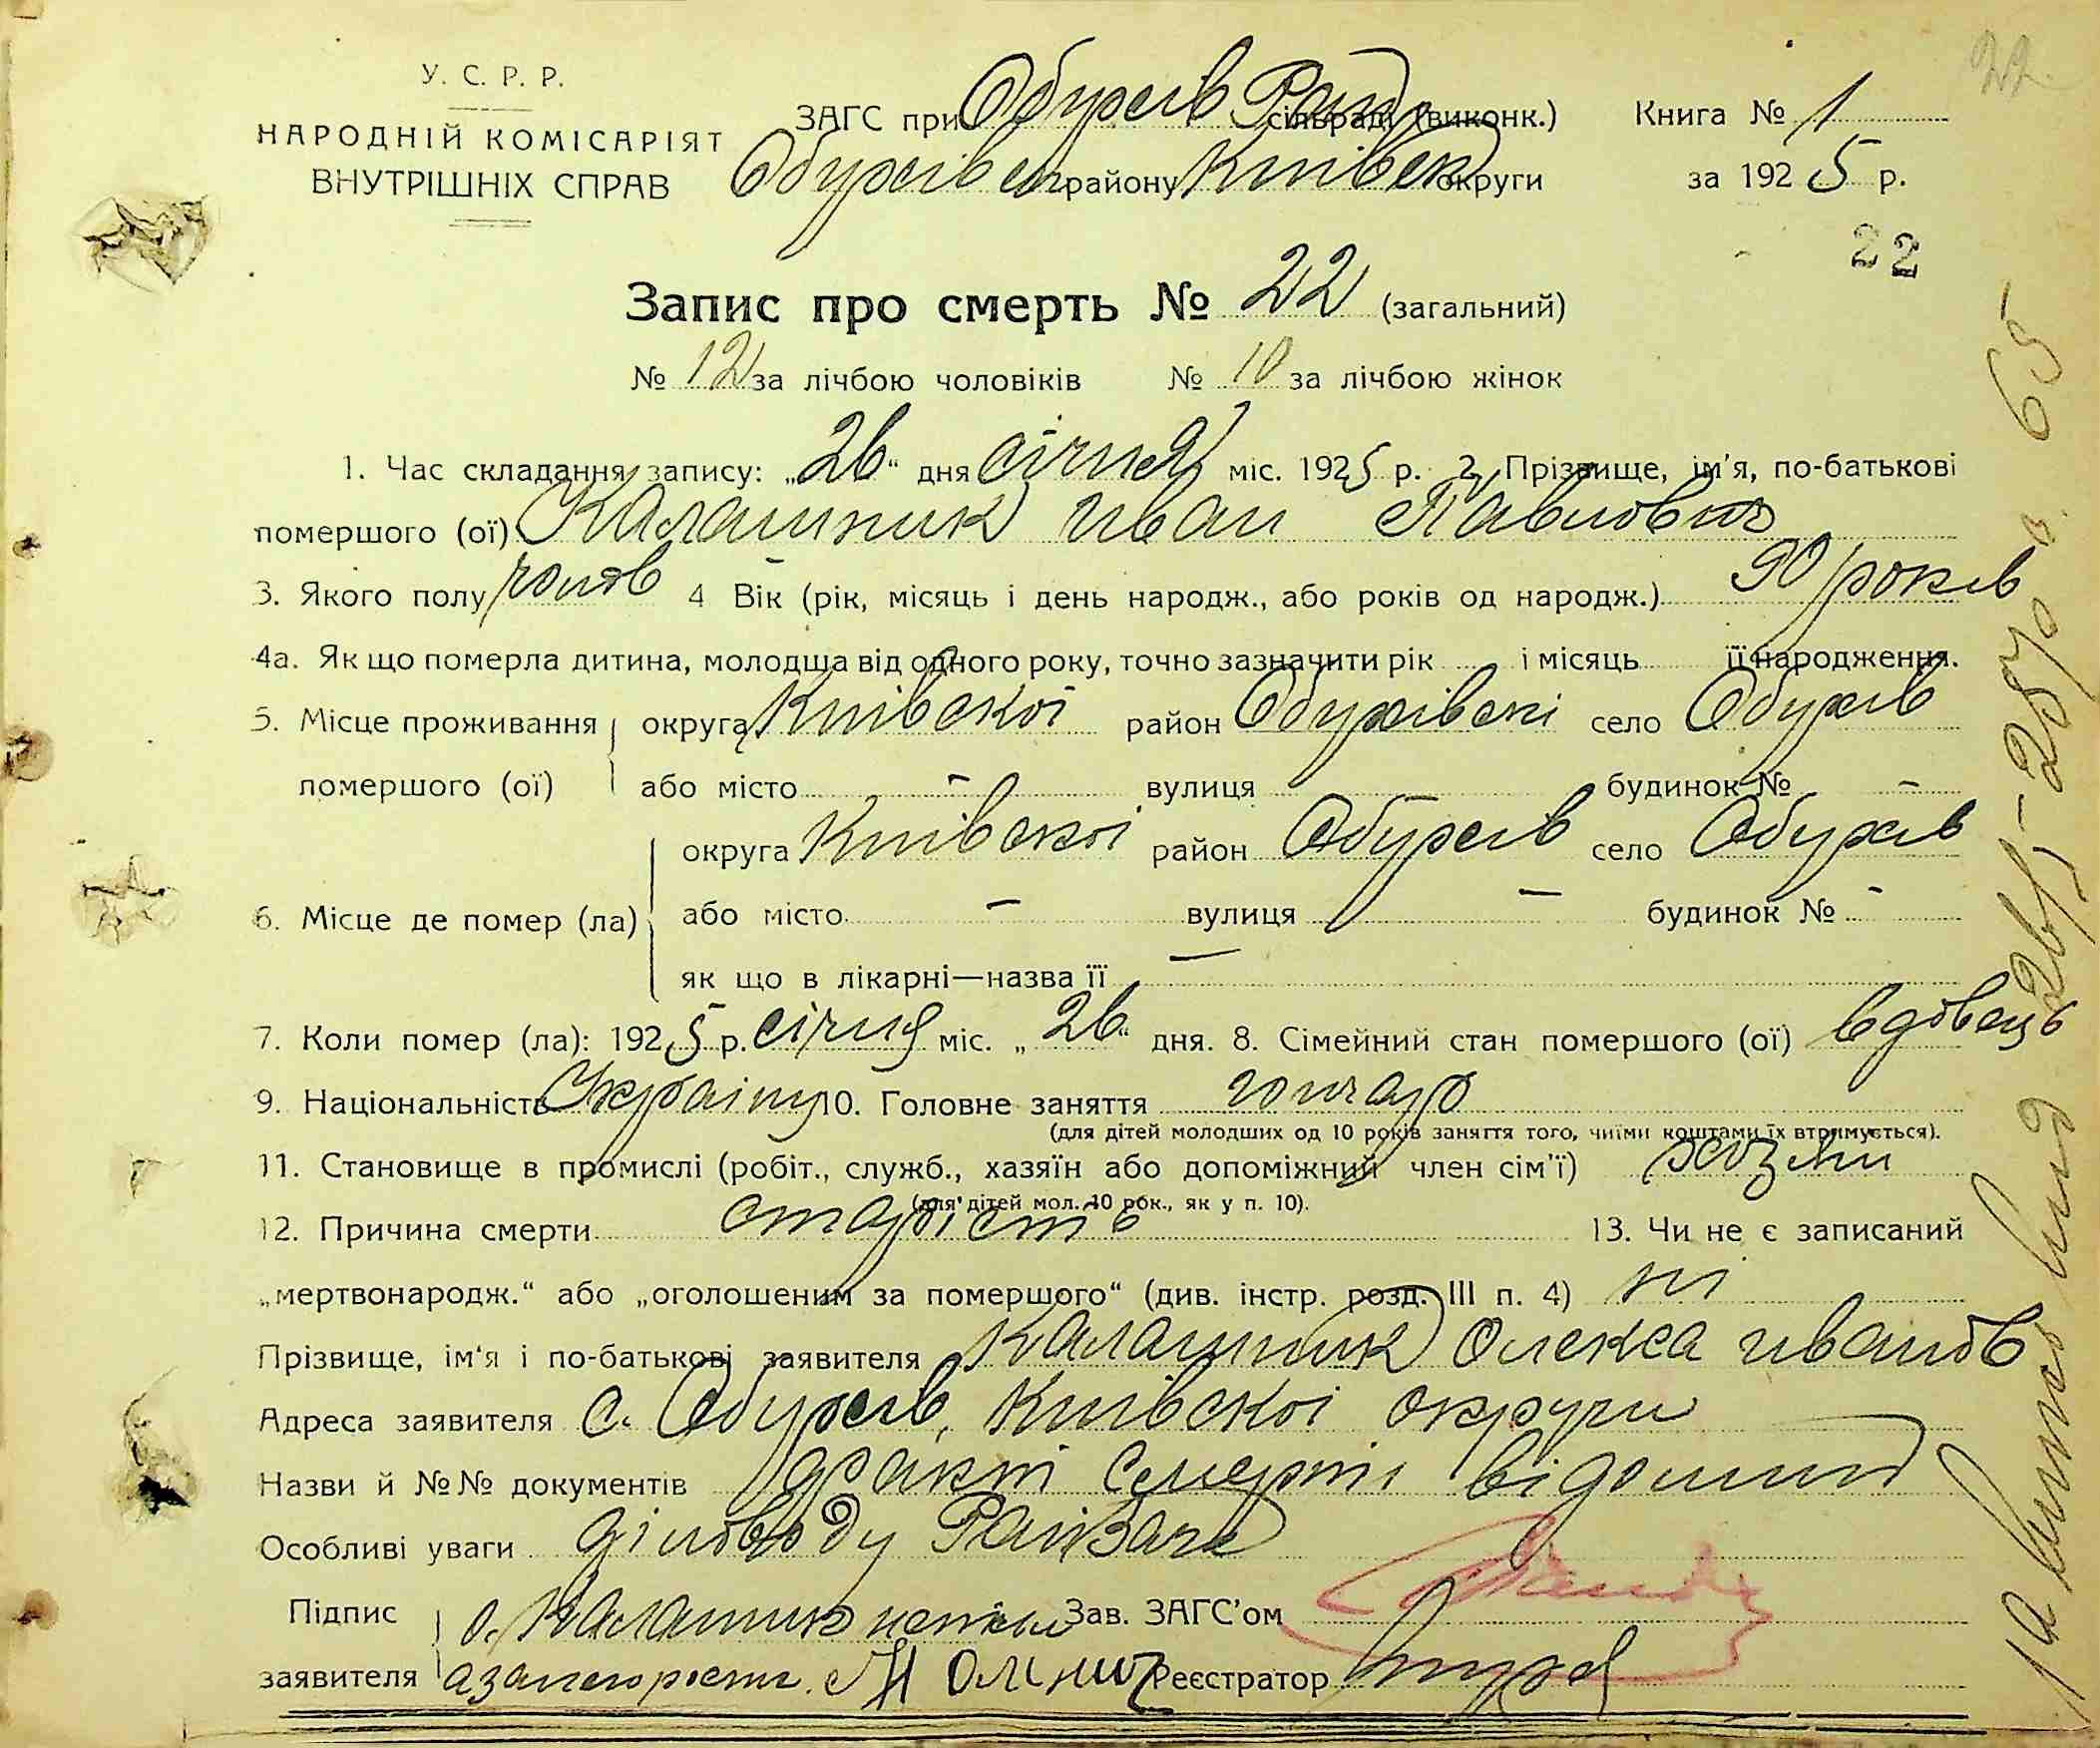 22
У. С. Р. Р.
НАРОДНІЙ КОМІСАРІЯТ
ВНУТРІШНІХ СПРАВ
ЗАГС при Обухів Рай сільраді (виконк.)
Обухівск району Київск округи
Книга № 1
за 1925 р.
22
Запис про смерть № 22 (загальний)
№ 12 за лічбою чоловіків № 10 за лічбою жінок
1. Час складання запису: „26“ дня січня міс. 1925 р. 2. Прізвище, ім'я, по-батькові
помершого (ої) Калашник Иван Павлович
3. Якого полу чолов 4 Вік (рік, місяць і день народж., або років од народж.) 90 років
4а. Як що померла дитина, молодша від одного року, точно зазначити рік і місяць її народження.
5. Місце проживання округа Київскої район Обухівскі село Обухів
помершого (ої) або місто - вулиця будинок № -
округа Київскої район Обухів село Обухів
6. Місце де помер (ла) або місто - вулиця - будинок № -
як що в лікарні—назва її —
7. Коли помер (ла): 1925 р. січня міс. „26“ дня. 8. Сімейний стан помершого (ої) вдовець
9. Національність Україну 10. Головне заняття гончар
(для дітей молодших од 10 років заняття того, чиїми коштами їх втримується).
11. Становище в промислі (робіт., служб., хазяїн або допоміжний член сім'ї) хозяин
(для дітей мол. 10 рок., як у п. 10).
12. Причина смерти старість 13. Чи не є записаний
„мертвонародж.“ або „оголошеним за помершого“ (див. інстр. розд. III п. 4) ні
Прізвище, ім'я і по-батькові заявителя Калашник Олекса Иванов
Адреса заявителя с. Обухів, Київскої округи
Назви й №№ документів факт смерти відомий
Особливі уваги діловоду РайЗагс
Підпис О. Калашник Зав. ЗАГС'ом
заявителя Реєстратор
65